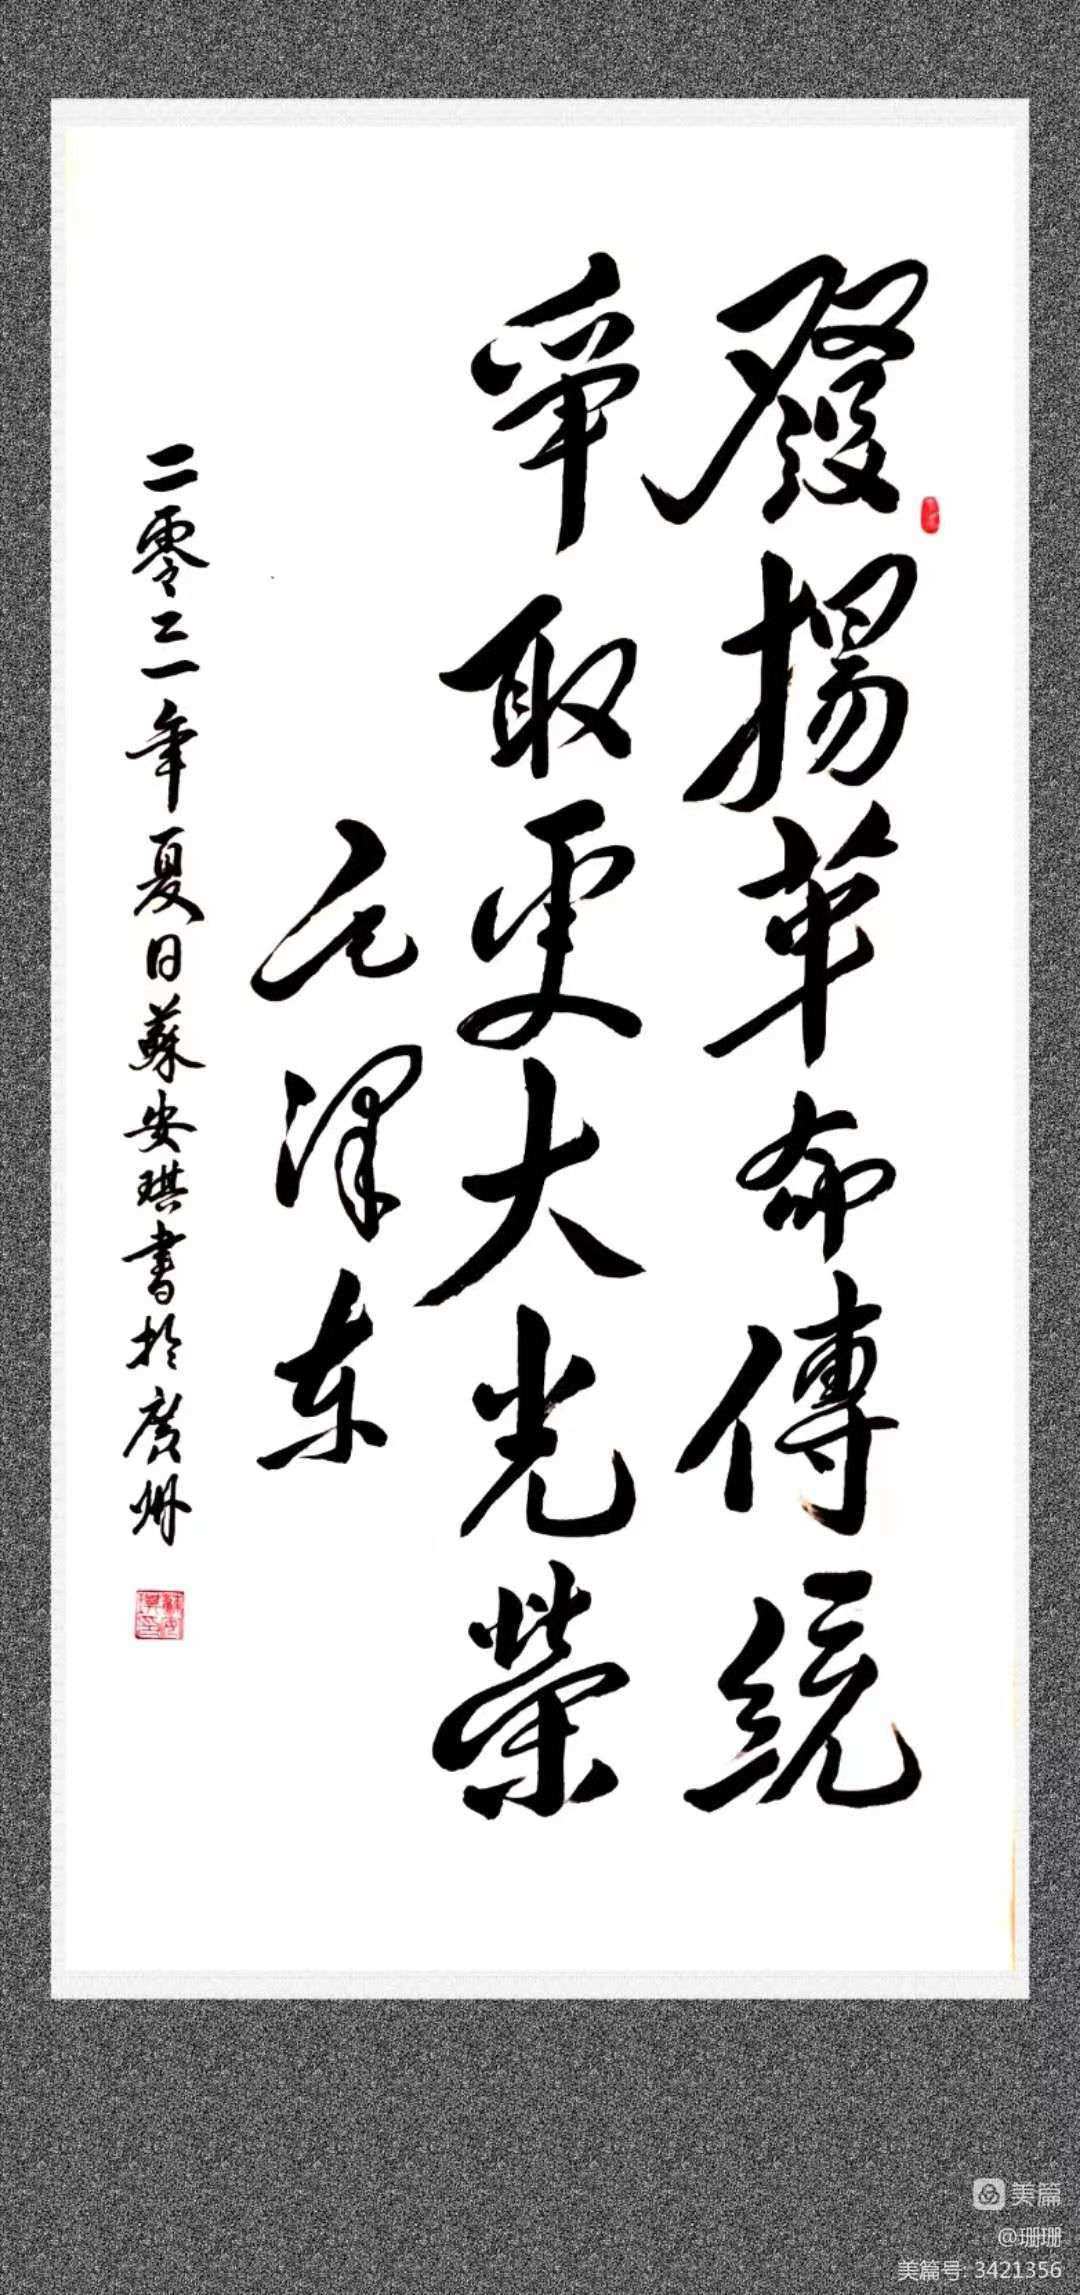 發揚革命傳統
爭取更大光榮
毛澤东
二零二一年夏日蘇安琪書於廣州
美篇
@珊珊
美篇号: 3421356